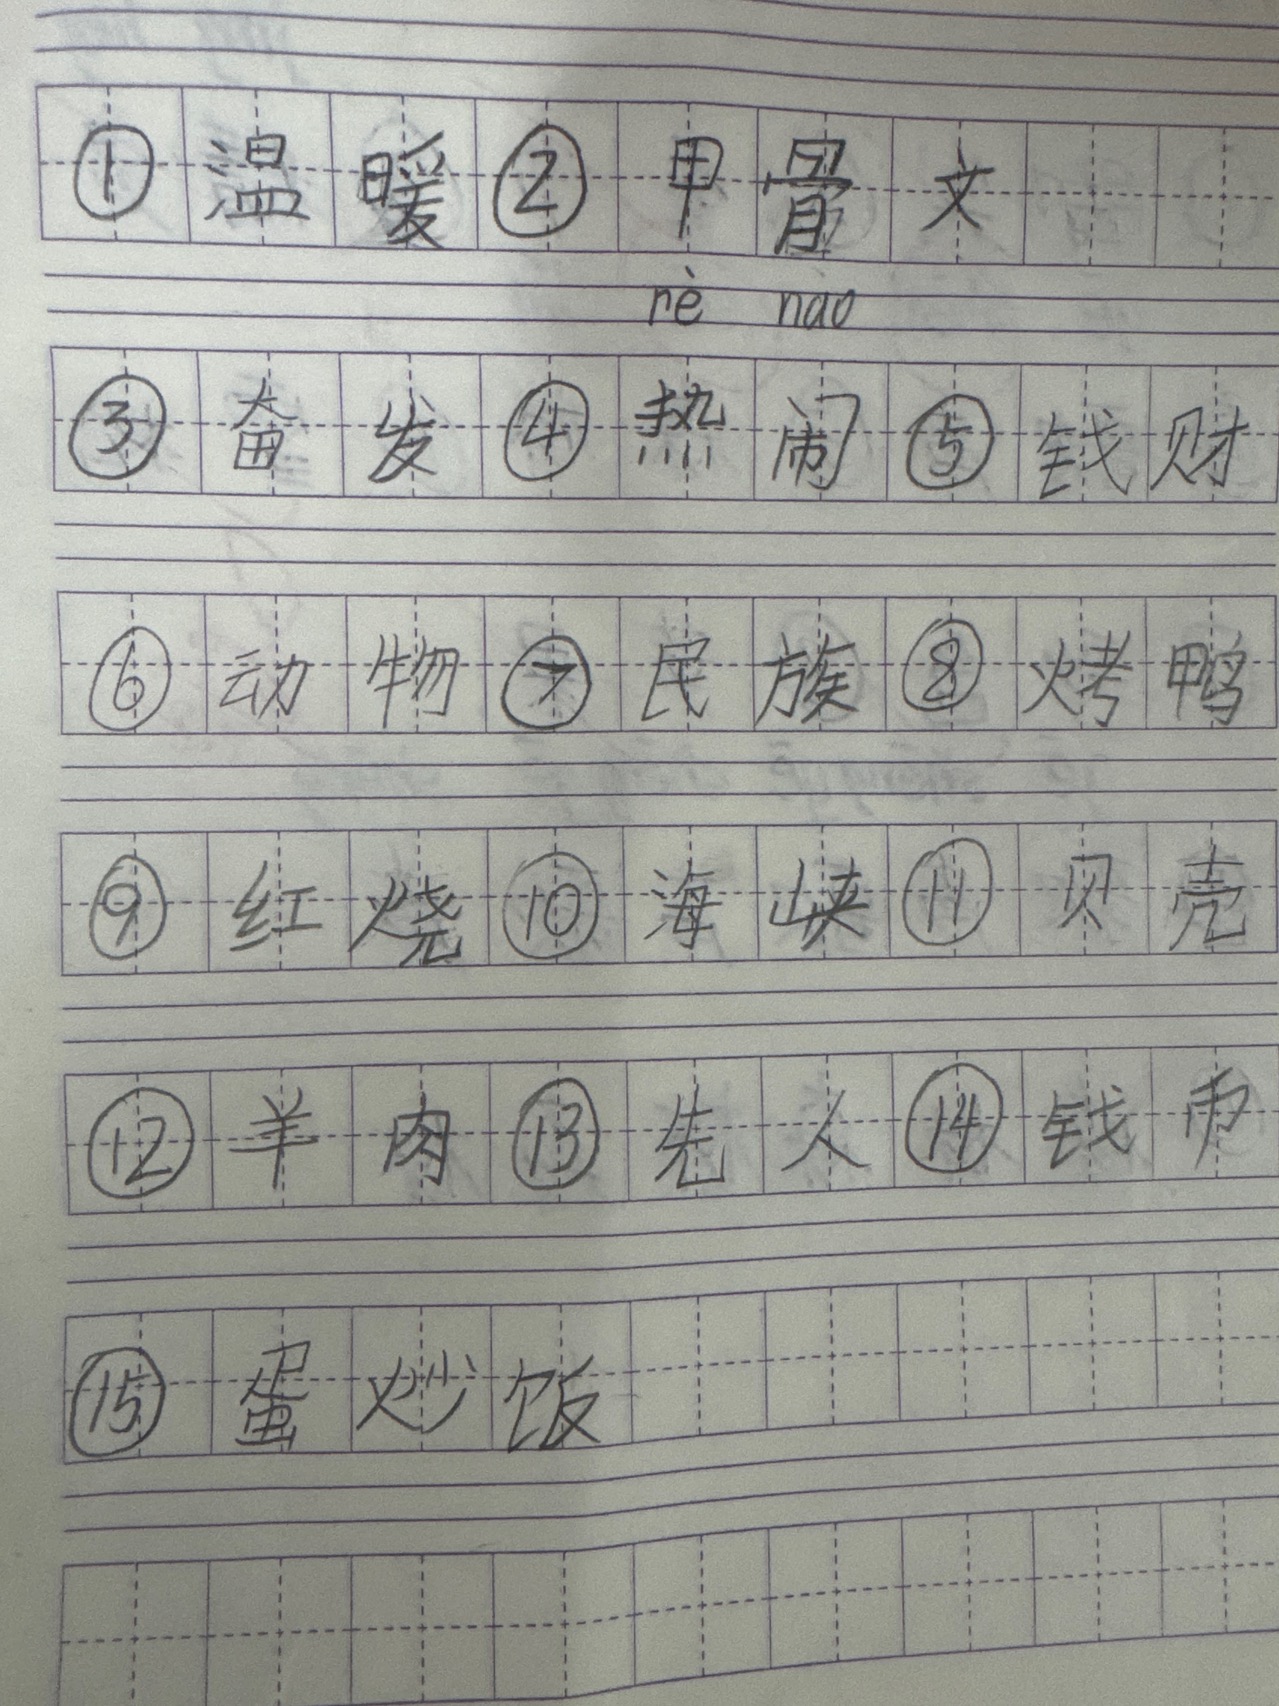 ①温暖②甲骨文
rè nao
③奋发④热闹⑤钱财
⑥动物⑦民族⑧烤鸭
⑨红烧⑩海峡⑪贝壳
⑫羊肉⑬先人⑭钱币
⑮蛋炒饭